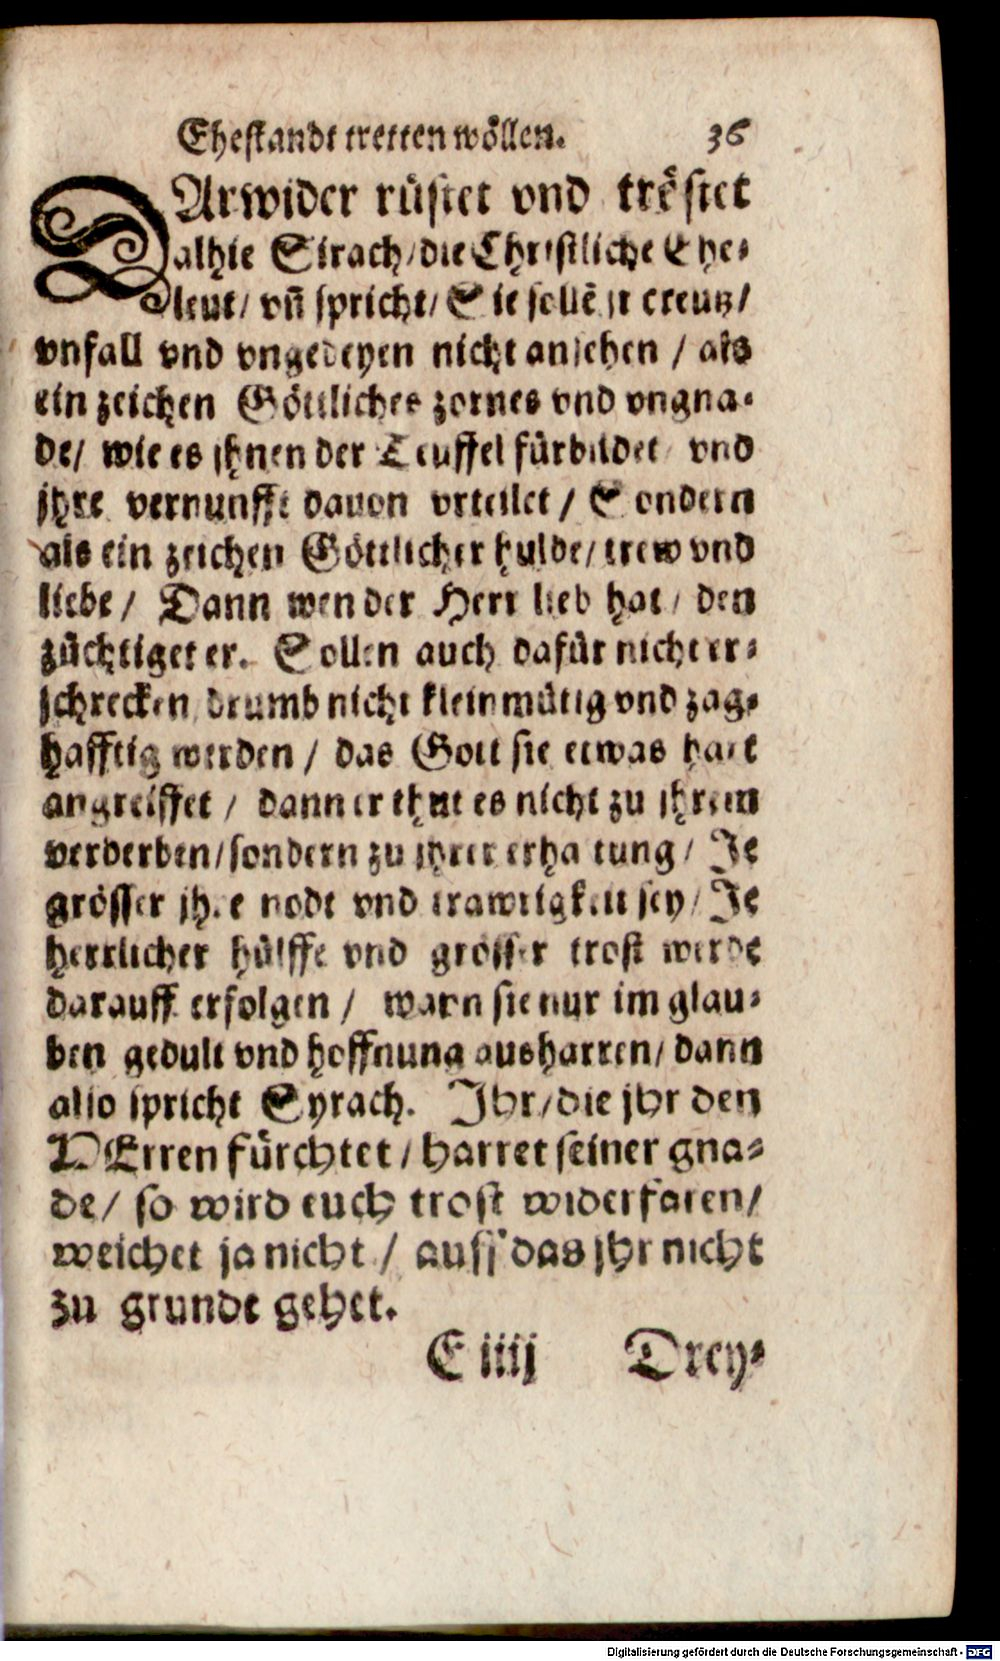 Ehestandt tretten wöllen. 36
DArwider rüstet vnd tröstet
alhie Sirach/die Christliche Ehe-
leut/ vñ spricht/ Sie sollẽ jr creutz/
vnfall vnd vngedeyen nicht ansehen / als
ein zeichen Göttliches zornes vnd vngna-
de/ wie es jhnen der Teuffel fürbildet/ vnd
jhre vernunfft dauon vrteilet / Sondern
als ein zeichen Göttlicher hulde/ trew vnd
liebe / Dann wen der Herr lieb hat / den
züchtiget er. Sollen auch dafür nicht er-
schrecken/ drumb nicht kleinmütig vnd zag-
hafftig werden / das Gott sie etwas hart
angreiffet / dann er thut es nicht zu jhrem
verderben/sondern zu jhrer erhaltung/ Je
grösser jhre nodt vnd trawrigkeit sey/ Je
herrlicher hülffe vnd grösser trost werde
darauff erfolgen / wann sie nur im glau-
ben gedult vnd hoffnung ausharren/ dann
also spricht Syrach. Jhr/die jhr den
HErren fürchtet / harret seiner gna-
de/ so wird euch trost widerfaren/
weichet ja nicht / auff das jhr nicht
zu grunde gehet.
E iiij Drey-
Digitalisierung gefördert durch die Deutsche Forschungsgemeinschaft - DFG